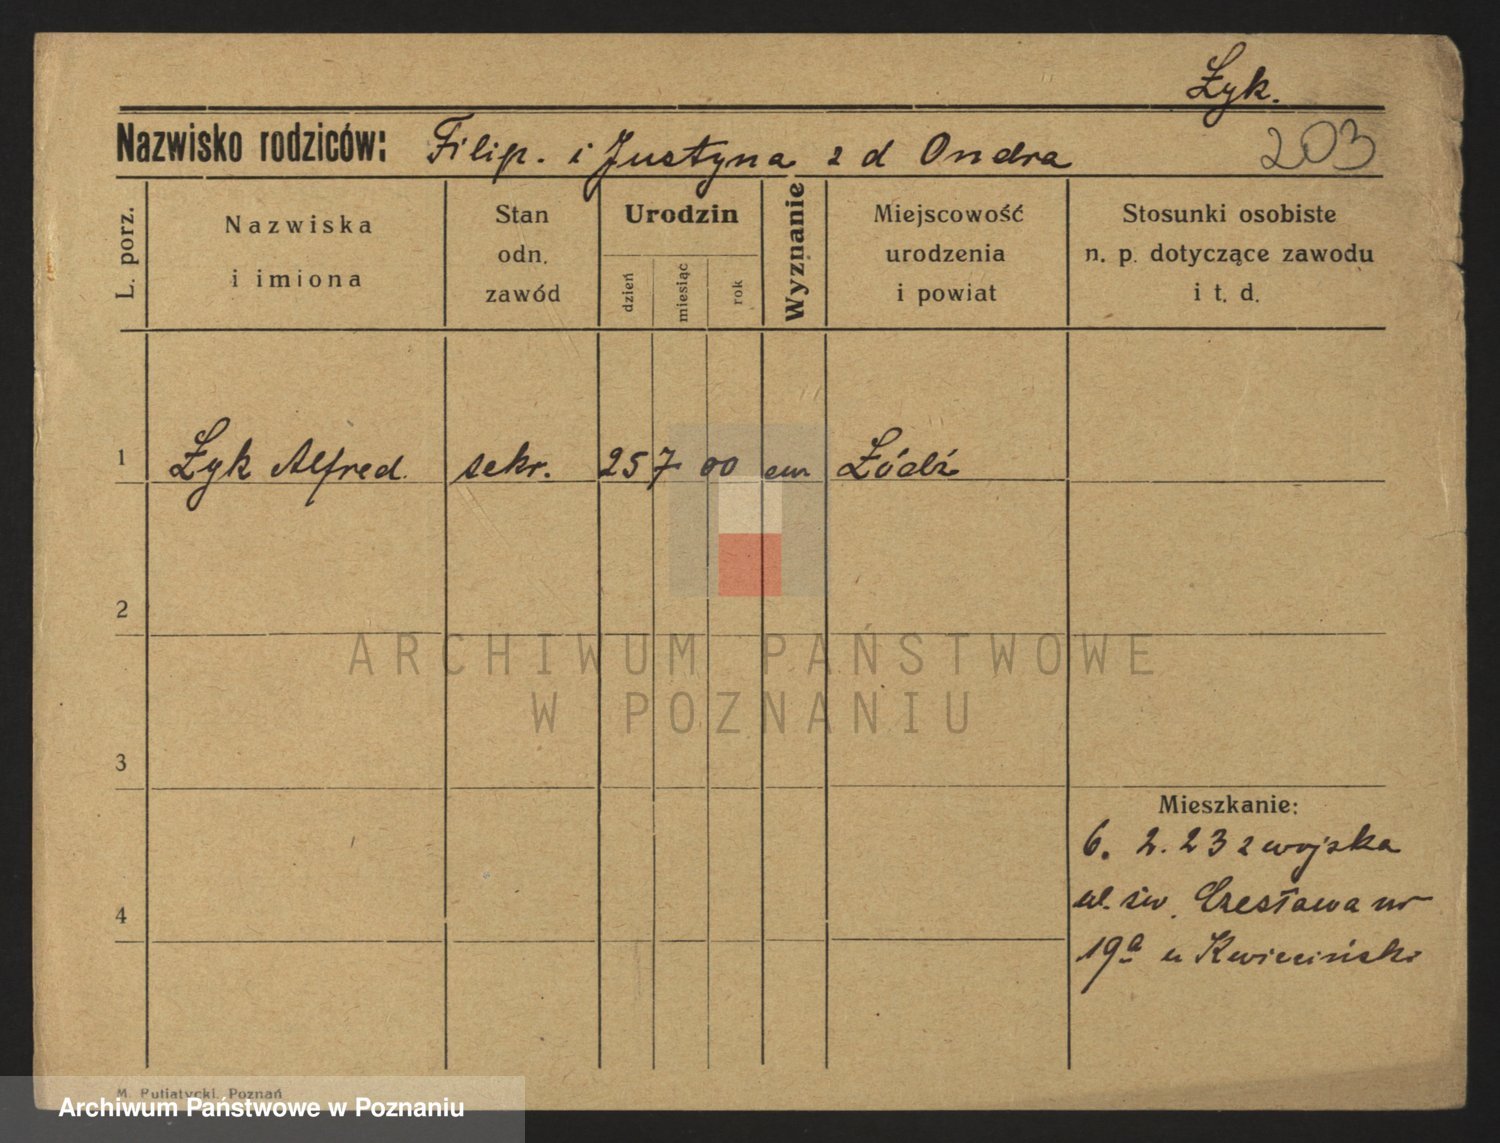 Żyk.
Nazwisko rodziców: Filip. i Justyna z d Ondra
203
L. porz.
Nazwiska
i imiona
Stan
odn.
zawód
Urodzin
dzień
miesiąc
rok
Wyznanie
Miejscowość
urodzenia
i powiat
Stosunki osobiste
n. p. dotyczące zawodu
i t. d.
1 Żyk Alfred. sekr. 25 7 00 ew Łódź
2
ARCHIWUM PAŃSTWOWE
W POZNANIU
3
Mieszkanie:
6. 2. 23 z wojska
ul. św. Czesława nr
19a u Kwieciński
4
M. Putiatycki, Poznań
Archiwum Państwowe w Poznaniu